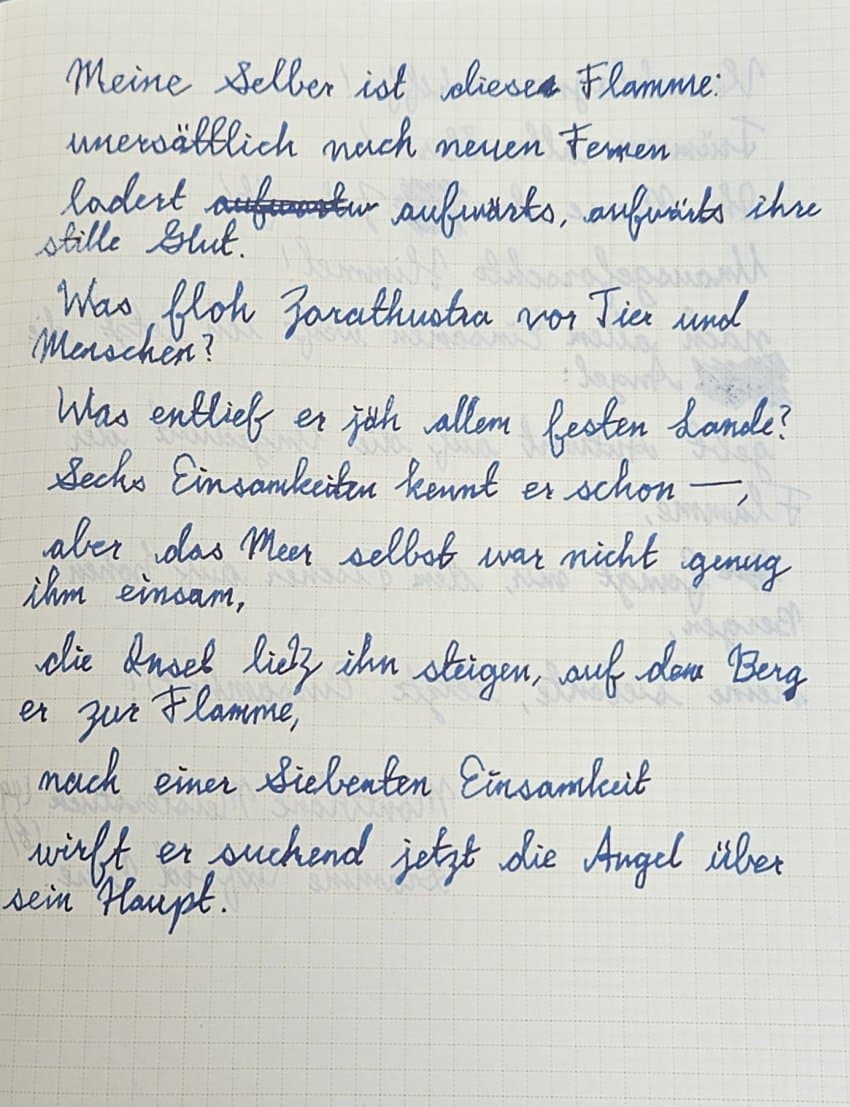 Meine Selber ist diese Flamme:
unersättlich nach neuen Fernen
lodert aufwärts, aufwärts ihre
stille Glut.
Was floh Zarathustra vor Tier und
Menschen?
Was entlief er jäh allem festen Lande?
Sechs Einsamkeiten kennt er schon —,
aber das Meer selbst war nicht genug
ihm einsam,
die Insel ließ ihn steigen, auf dem Berg
er zur Flamme,
nach einer Siebenten Einsamkeit
wirft er suchend jetzt die Angel über
sein Haupt.